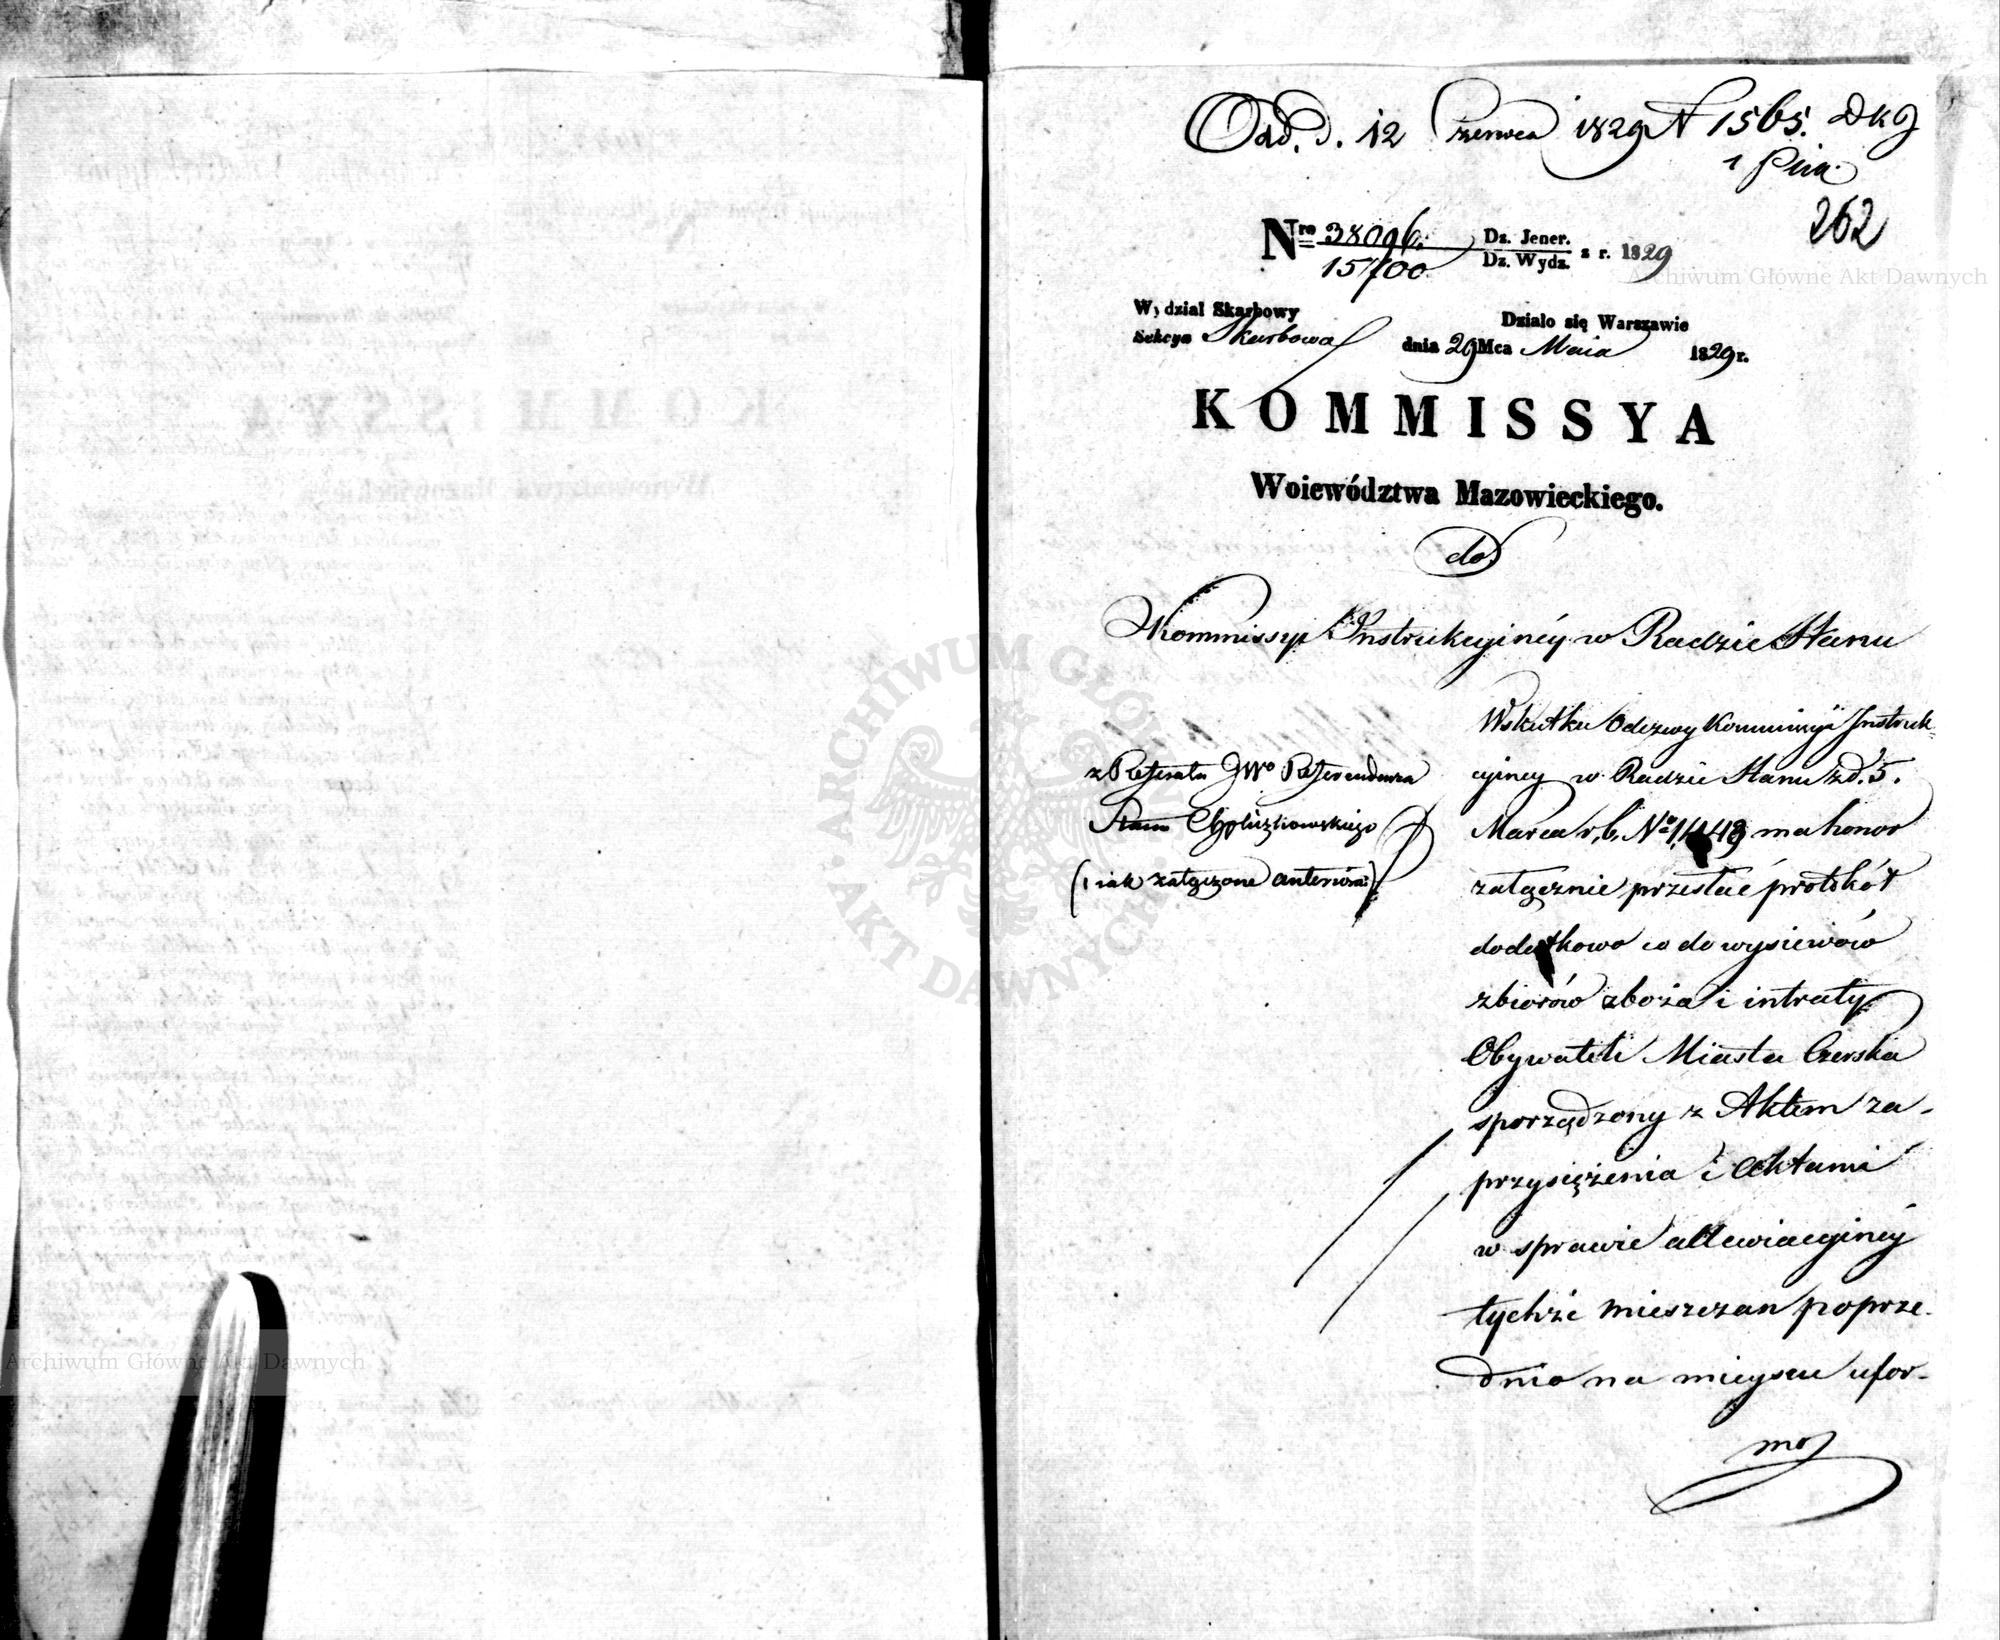 Odd. d. 12 Czerwca 1829 N 1565. DKg
262
Nro 38096. Dz. Jener. z r. 1829
15700 Dz. Wydz.
Archiwum Główne Akt Dawnych
Wydzial Skarbowy
Działo się Warszawie
Sekcya Skarbowa
dnia 29 Mca Maia 1829 r.
KOMMISSYA
Woiewództwa Mazowieckiego.
do
Kommissyi Instrukcyinéy w Radzie Stanu
z Referatu JWo Referendarza
Stanu
(i iak załączone anteriora)
Wskutku Odezwy Kommissyi Instruk-
cyiney w Radzie Stanu z d. 5.
Marca r. b. No 1,448 ma honor
załącznie przesłać protokół
dodatkowo co do wysiewów
zbiorów zboża i intraty
Obywateli Miasta Czerska
sporządzony z Aktem za-
przysiężenia i Aktami
w sprawie allewiacyinéy
tychże mieszczan poprze-
dnio na mieyscu ufor-
mo
ARCHIWUM GŁÓWNE AKT DAWNYCH
Archiwum Główne Akt Dawnych